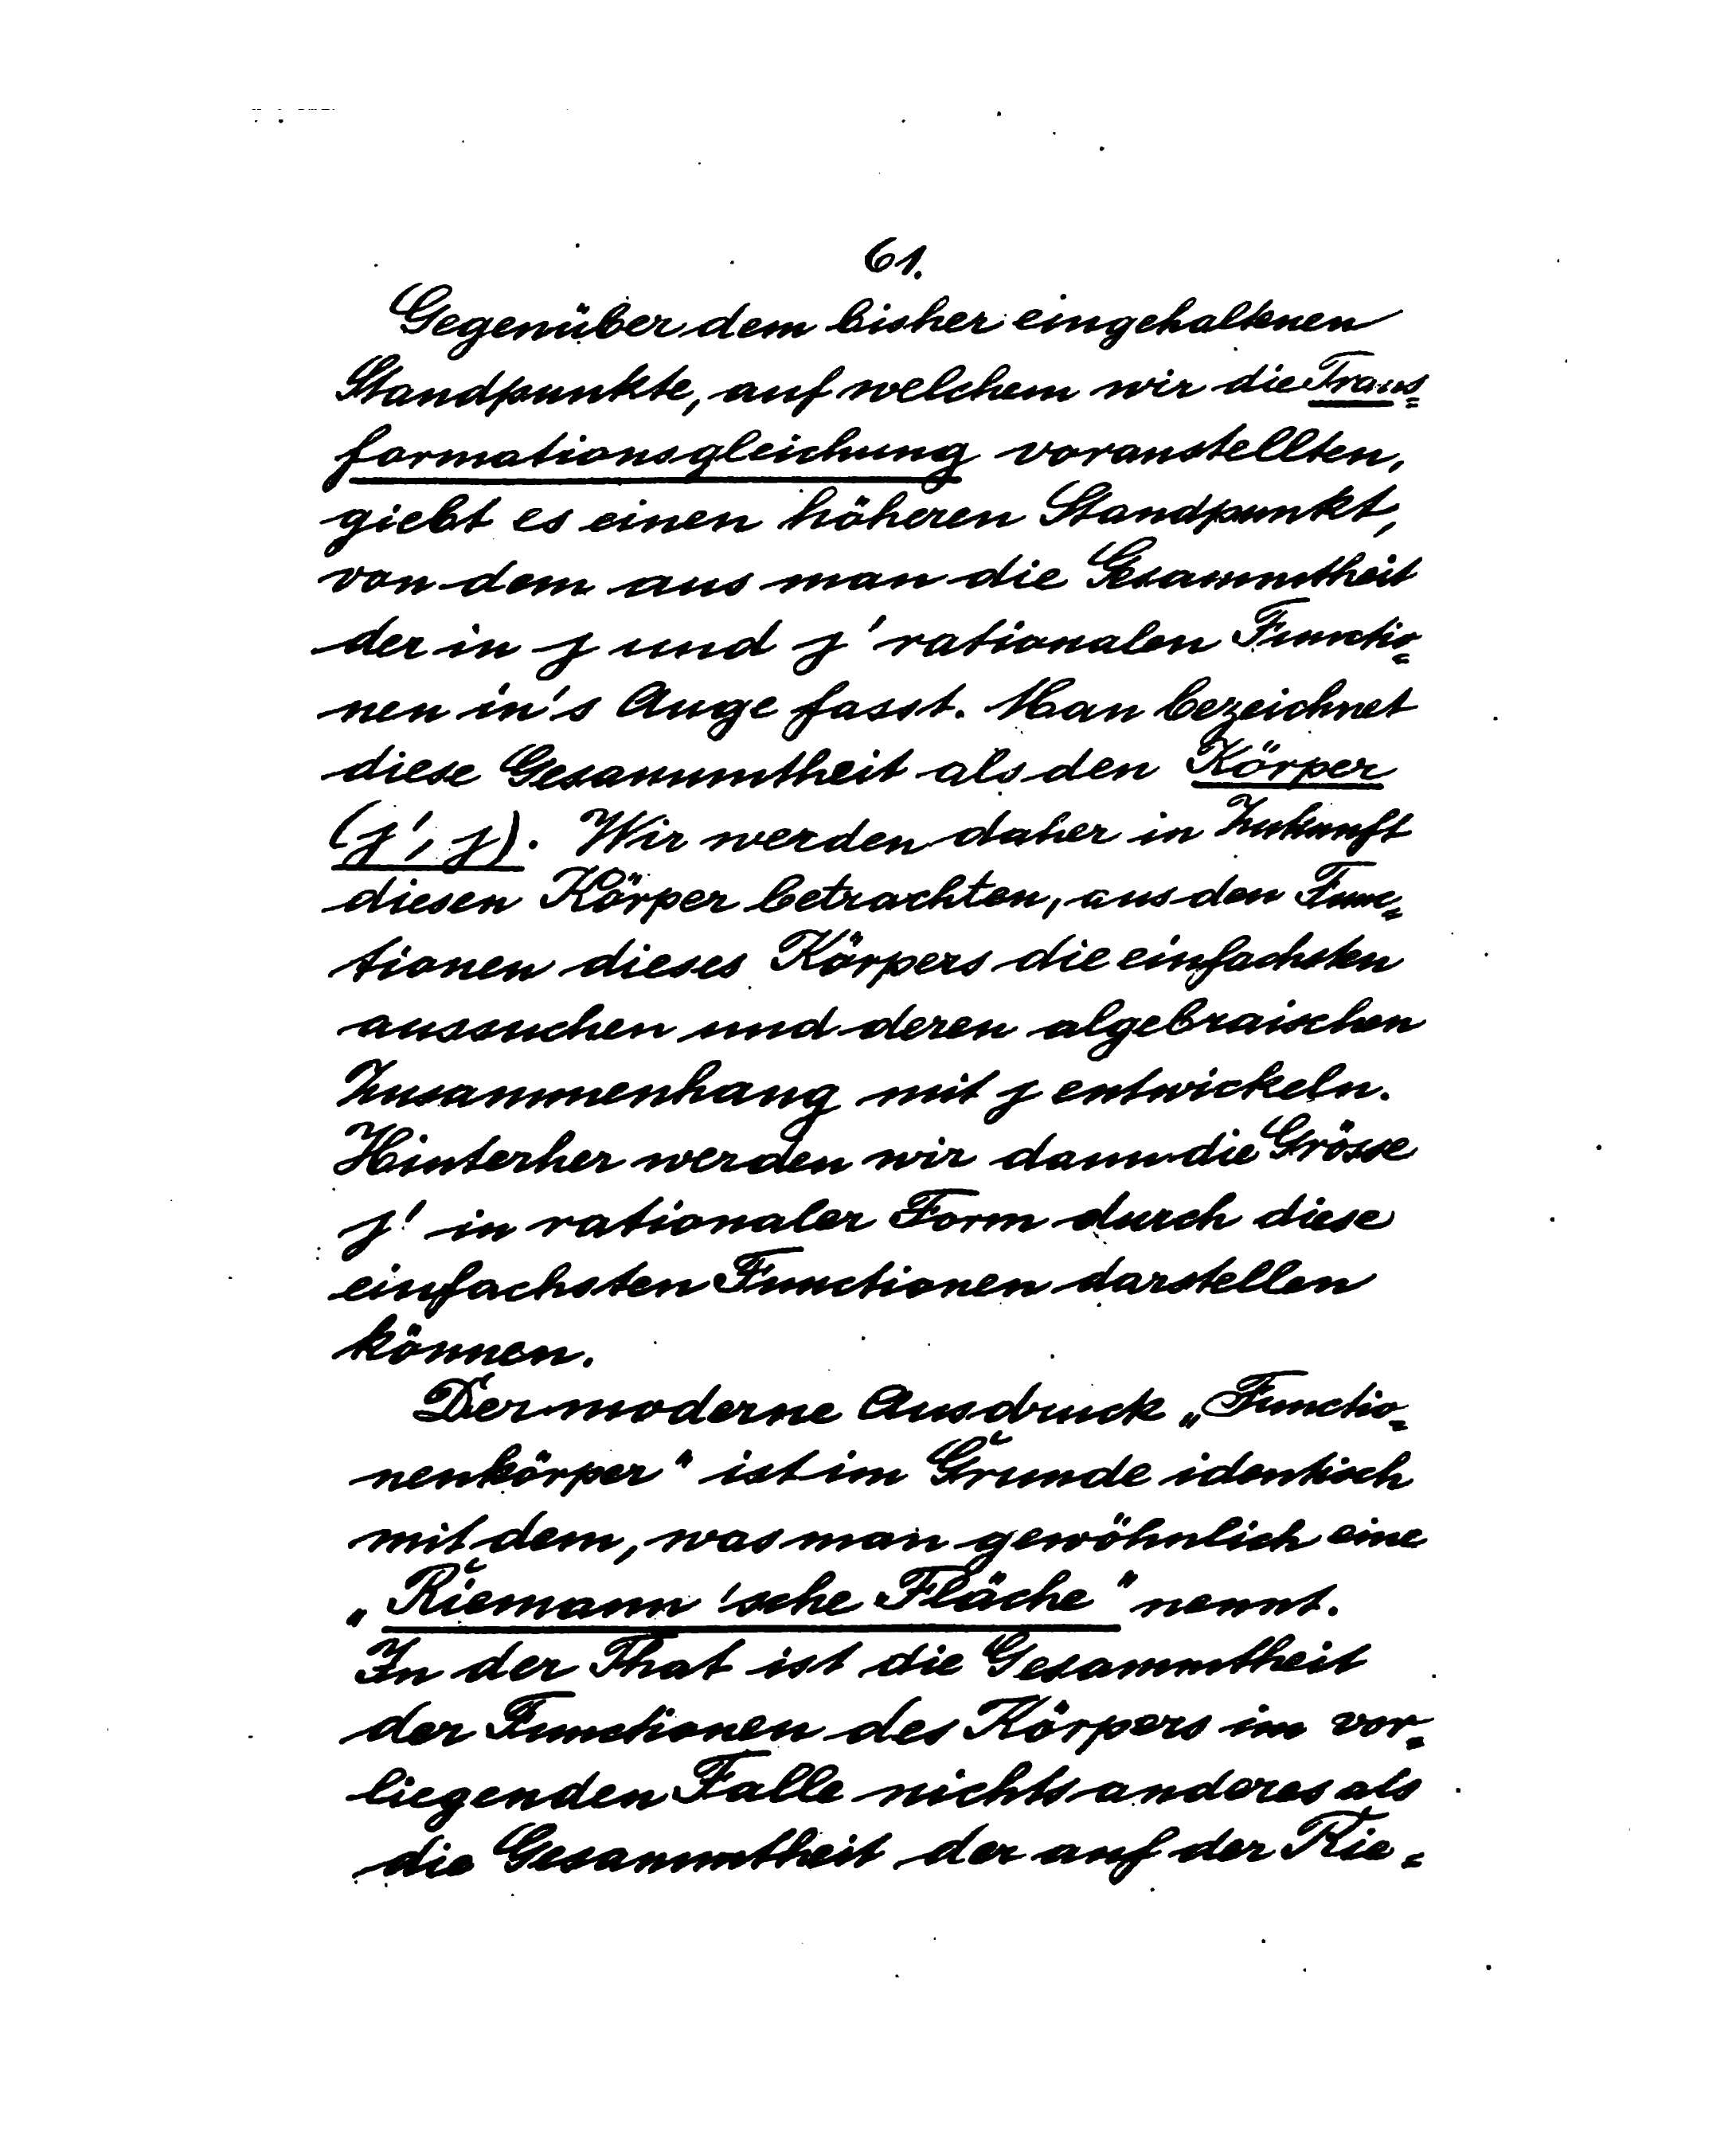 61.
Gegenüber dem bisher eingehaltenen
Standpunkte, auf welchem wir die Trans=
formationsgleichung voranstellten,
giebt es einen höheren Standpunkt,
von dem aus man die Gesammtheit
der in j und j' rationalen Functio=
nen in's Auge fasst. Man bezeichnet
diese Gesammtheit als den Körper
(j', j). Wir werden daher in Zukunft
diesen Körper betrachten, aus den Func=
tionen dieses Körpers die einfachsten
aussuchen und deren algebraischen
Zusammenhang mit j entwickeln.
Hinterher werden wir dann die Grösse
j' in rationaler Form durch diese
einfachsten Functionen darstellen
können.
Der moderne Ausdruck „Functio=
nenkörper" ist im Grunde identisch
mit dem, was man gewöhnlich eine
„Riemann'sche Fläche" nennt.
In der That ist die Gesammtheit
der Functionen des Körpers im vor=
liegenden Falle nichts anderes als
die Gesammtheit der auf der Rie=